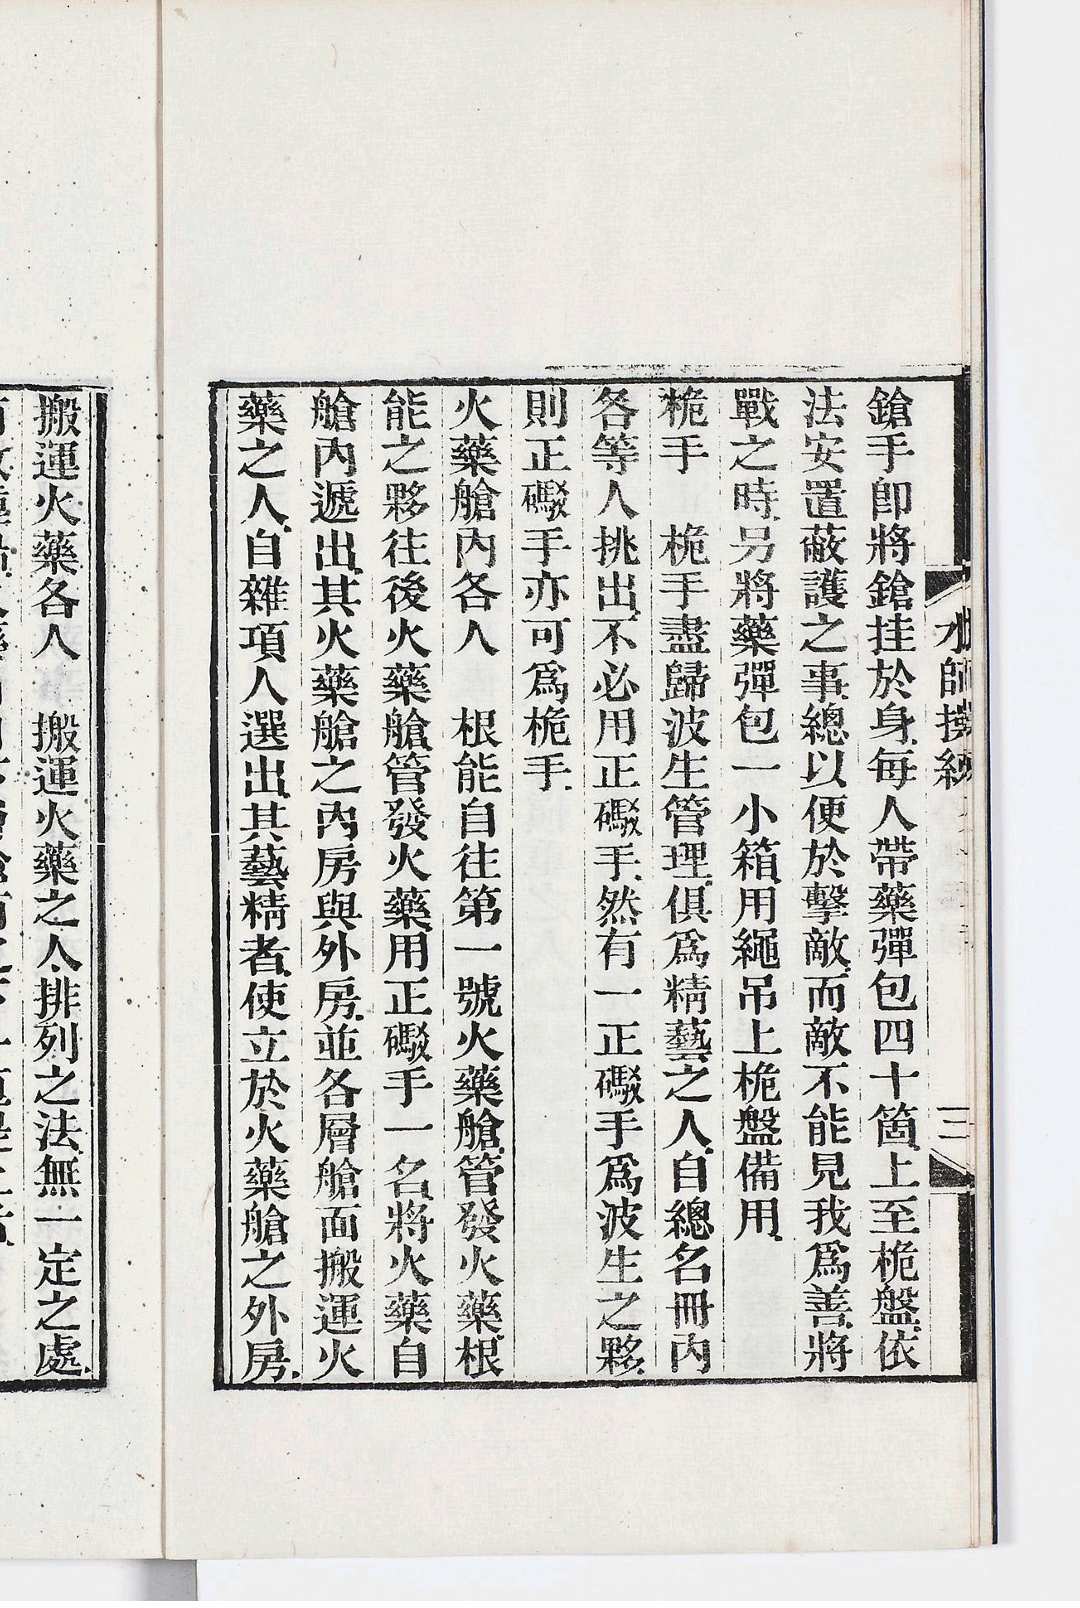 水師操練
三
鎗手卽將鎗挂於身每人帶藥彈包四十箇上至桅盤依
法安置蔽護之事總以便於擊敵而敵不能見我爲善將
戰之時另將藥彈包一小箱用繩吊上桅盤備用
桅手　桅手盡歸波生管理俱爲精藝之人自總名冊內
各等人挑出不必用正礮手然有一正礮手爲波生之夥
則正礮手亦可爲桅手
火藥艙內各人　根能自往第一號火藥艙管發火藥根
能之夥往後火藥艙管發火藥用正礮手一名將火藥自
艙內遞出其火藥艙之內房與外房並各層艙面搬運火
藥之人自雜項人選出其藝精者使立於火藥艙之外房
搬運火藥各人　搬運火藥之人排列之法無一定之處